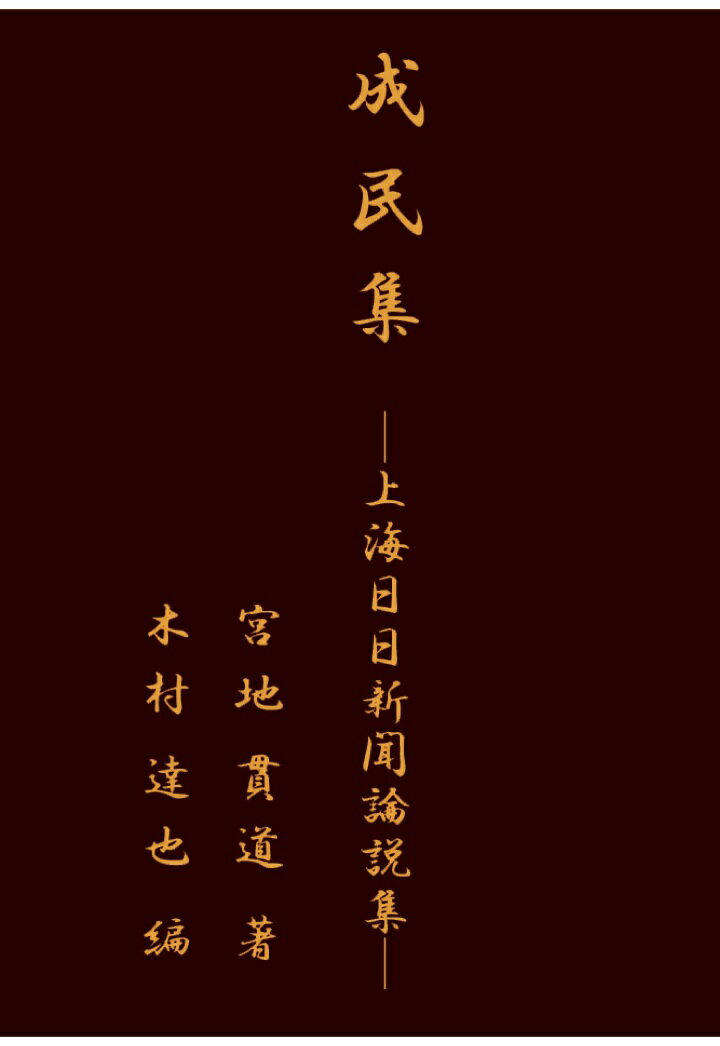 成民集 ―上海日日新聞論説集―
宮地貫道 著
木村達也 編